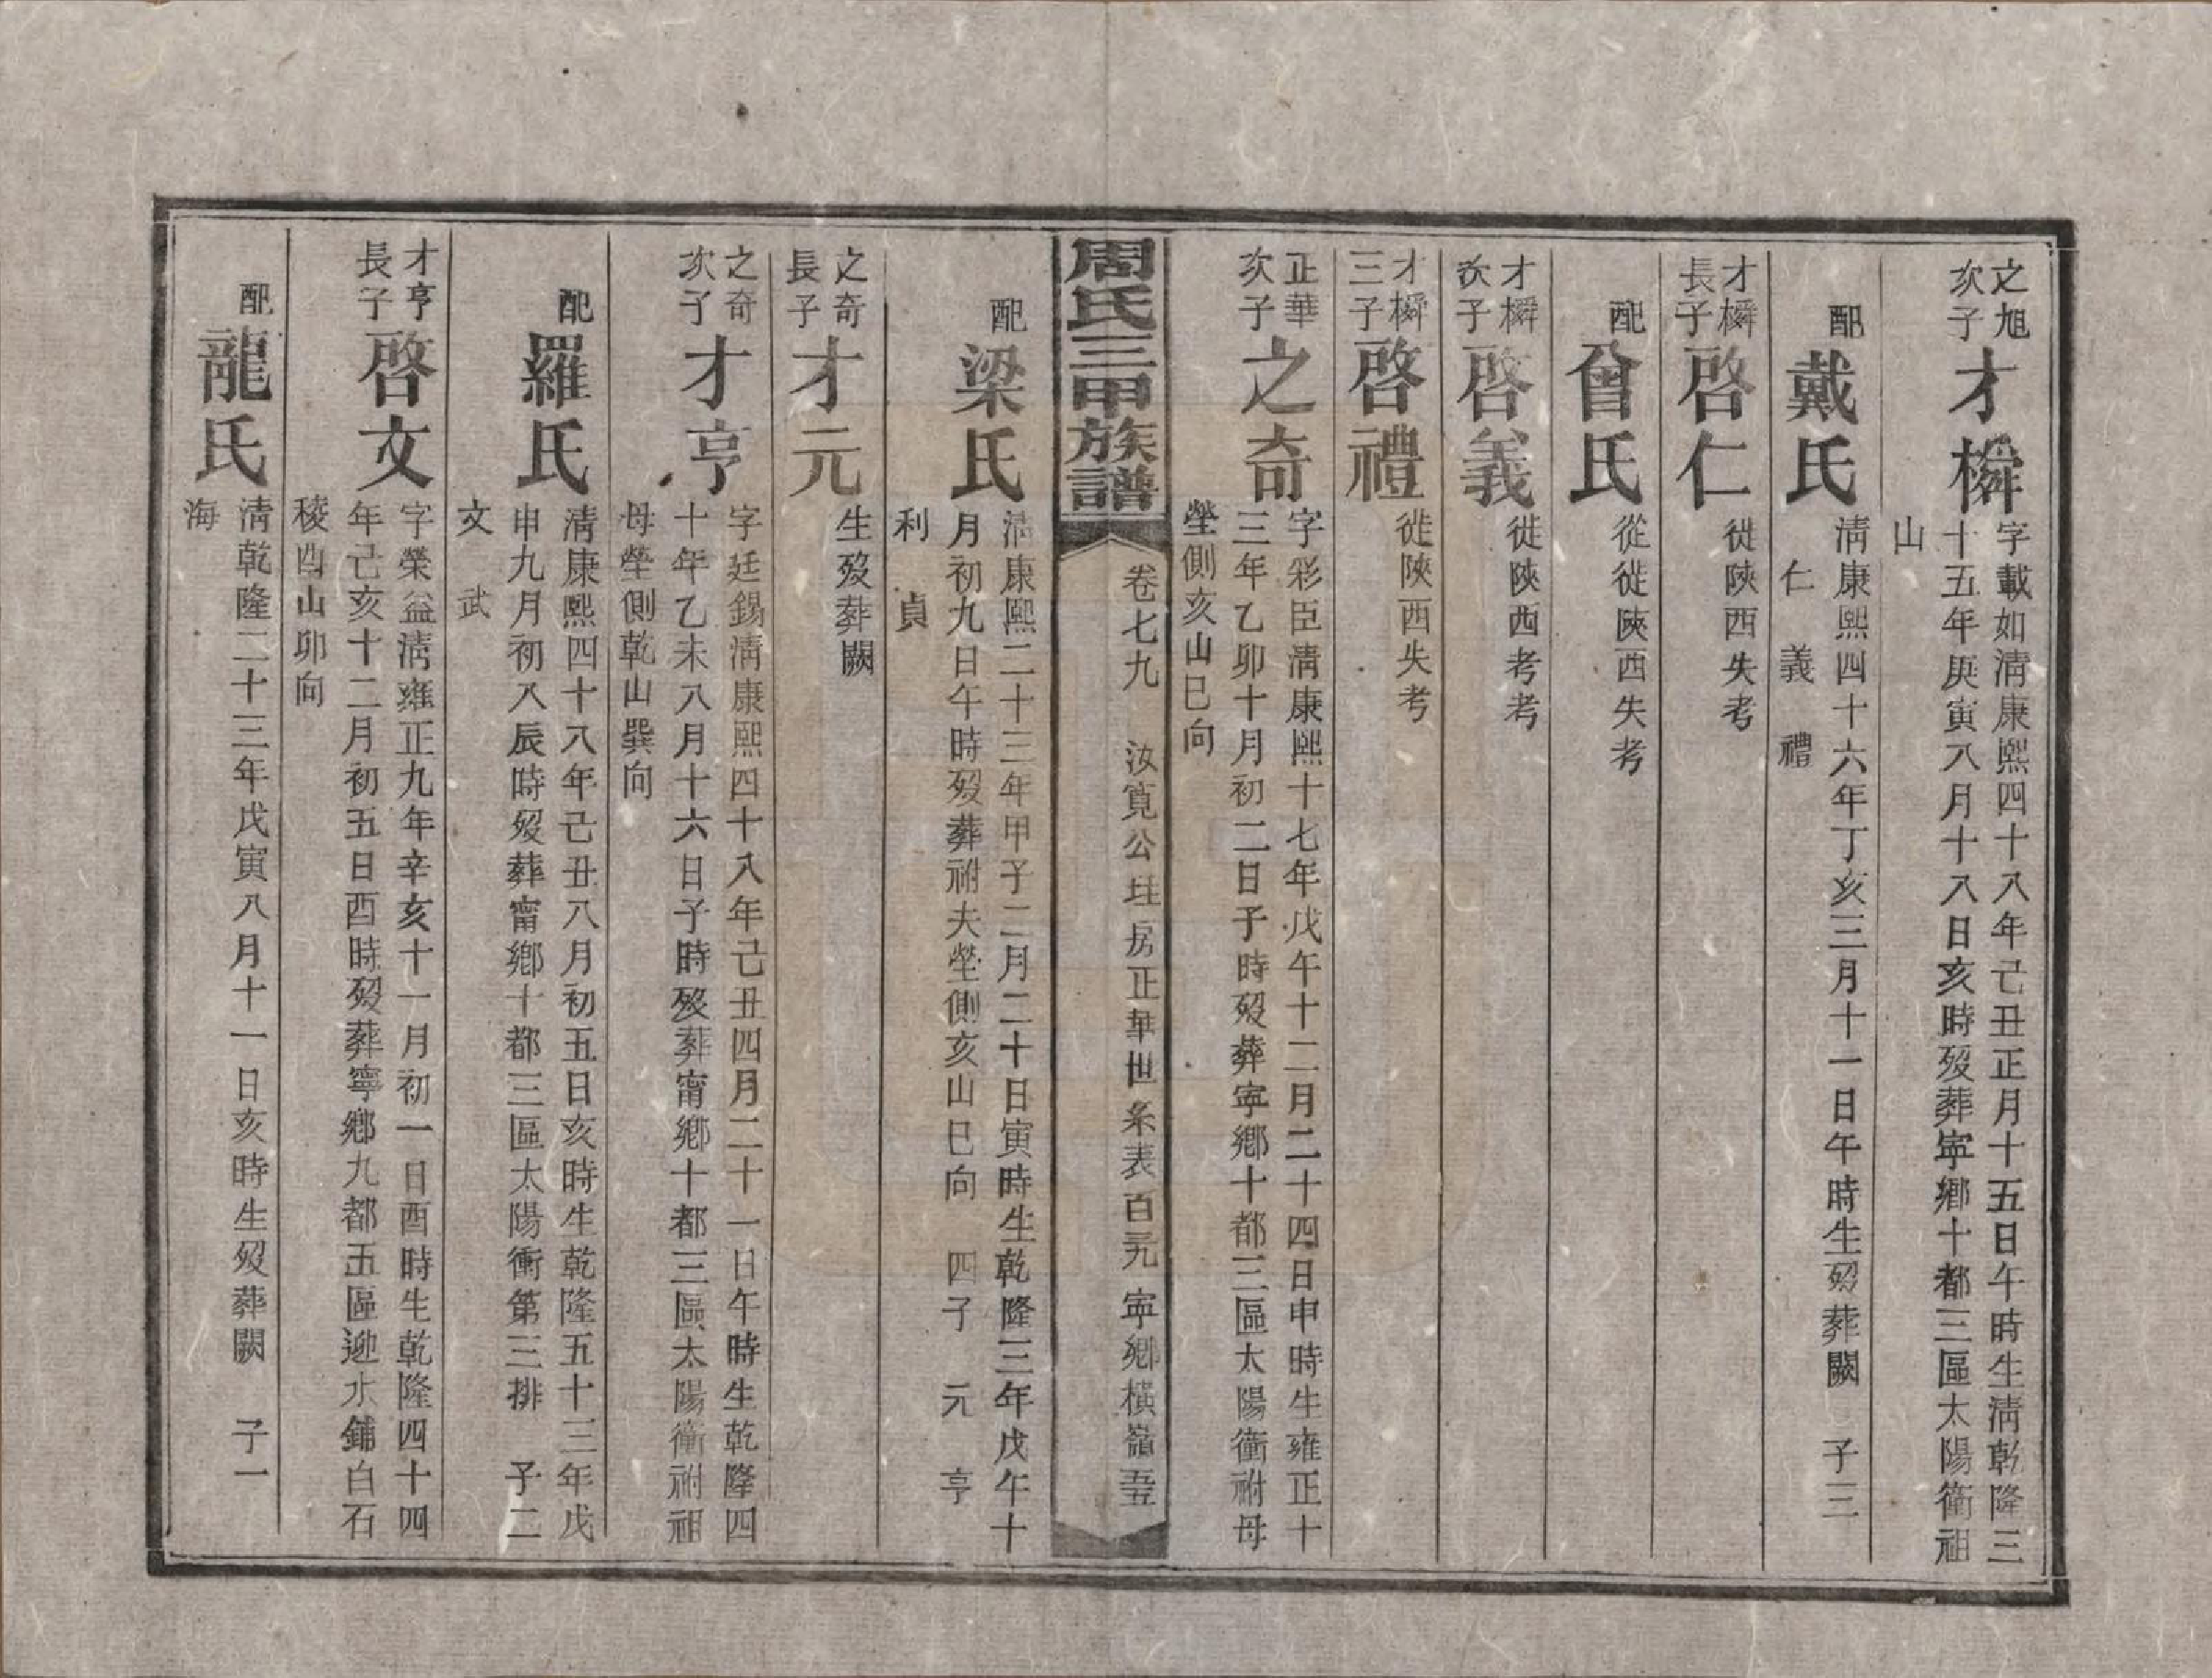 之旭
次子
才橓
字載如淸康熙四十八年己丑正月十五日午時生淸乾隆三
十五年庚寅八月十八日亥時歿葬寧鄉十都三區太陽衝祖
山
配
戴氏
淸康熙四十六年丁亥三月十一日午時生歿葬闕 子三
仁 義 禮
才橓
長子
啓仁
徙陝西失考
配
曾氏
從徙陝西失考
才橓
次子
啓義
徙陝西考考
才橓
三子
啓禮
徙陝西失考
正華
次子
之奇
字彩臣淸康熙十七年戊午十二月二十四日申時生雍正十
三年乙卯十月初二日子時歿葬寧鄉十都三區太陽衝祔母
塋側亥山巳向
周氏三甲族譜
卷七九 汝寬公 房正華世系表百 寧鄉橫嶺
配
梁氏
淸康熙二十三年甲子二月二十日寅時生乾隆三年戊午十
月初九日午時歿葬祔夫塋側亥山巳向 四子 元 亨
利 貞
之奇
長子
才元
生歿葬闕
之奇
次子
才亨
字廷錫淸康熙四十八年己丑四月二十一日午時生乾隆四
十年乙未八月十六日子時歿葬甯鄉十都三區太陽衝祔祖
母塋側乾山巽向
配
羅氏
淸康熙四十八年己丑八月初五日亥時生乾隆五十三年戊
申九月初八辰時歿葬甯鄉十都三區太陽衝第三排 子二
文 武
才亨
長子
啓文
字榮益淸雍正九年辛亥十一月初一日酉時生乾隆四十四
年己亥十二月初五日酉時歿葬寧鄉九都五區迎水鋪白石
稜酉山卯向
配
龍氏
淸乾隆二十三年戊寅八月十一日亥時生歿葬闕 子一
海